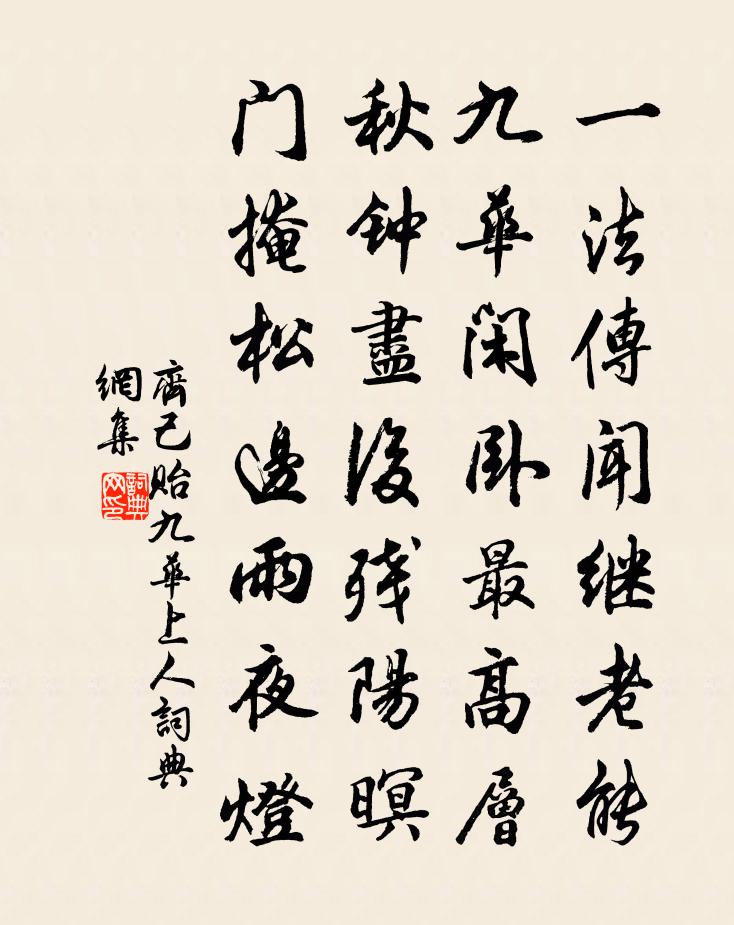 一法傳闻继老能
九華闲卧最高層
秋钟盡後残陽暝
门掩松邊雨夜燈
齊己贻九華上人詞典
網集
詞典网印